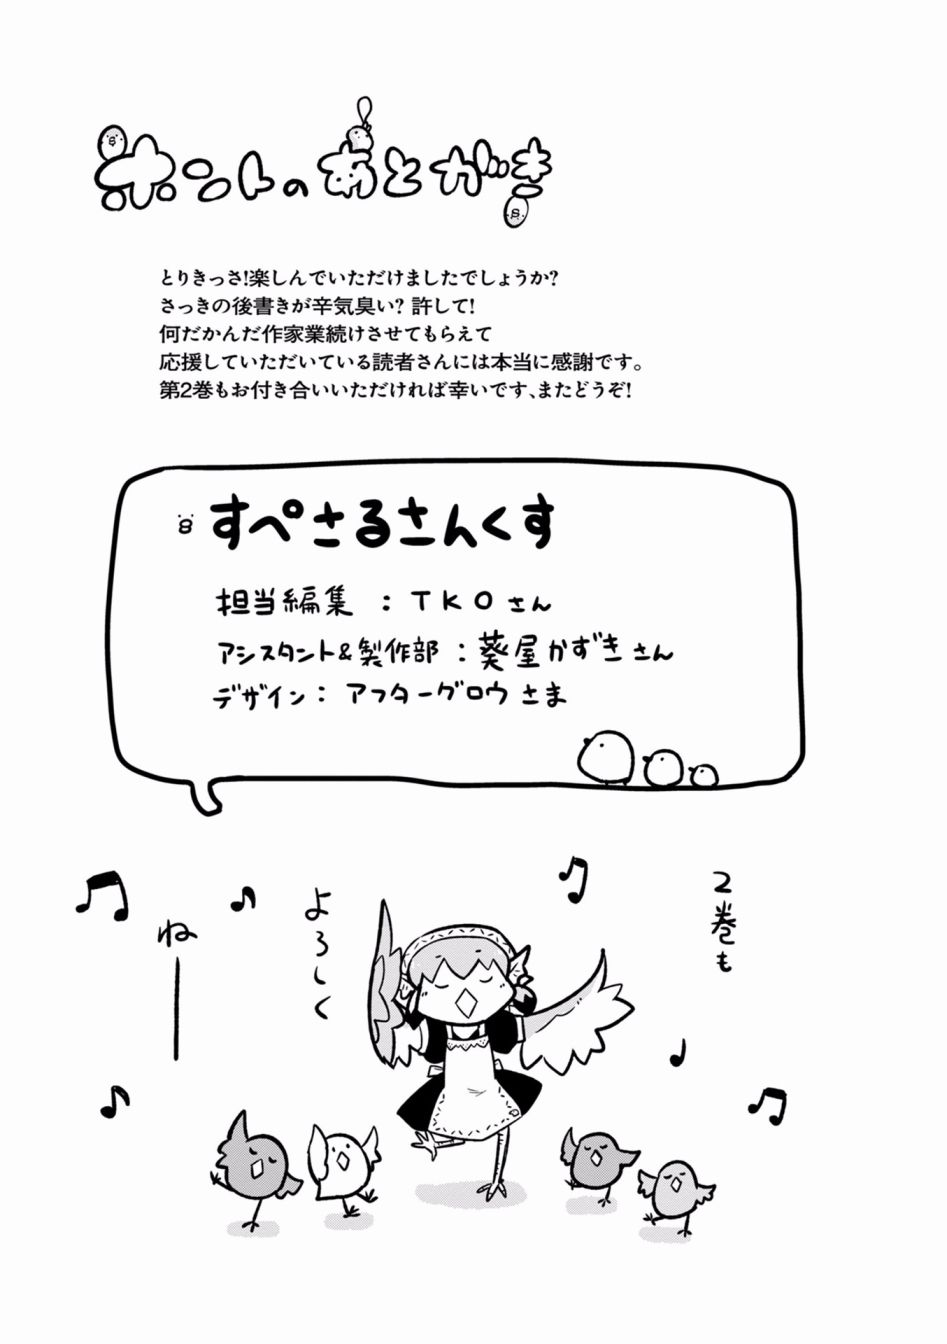 ホントのあとがき
とりきっさ!楽しんでいただけましたでしょうか?
さっきの後書きが辛気臭い? 許して!
何だかんだ作家業続けさせてもらえて
応援していただいている読者さんには本当に感謝です。
第2巻もお付き合いいただければ幸いです、またどうぞ!
すぺさるさんくす
担当編集 : TKOさん
アシスタント&製作部 :葵屋かずきさん
デザイン : アフターグロウさま
2巻も
よろしく
ねー